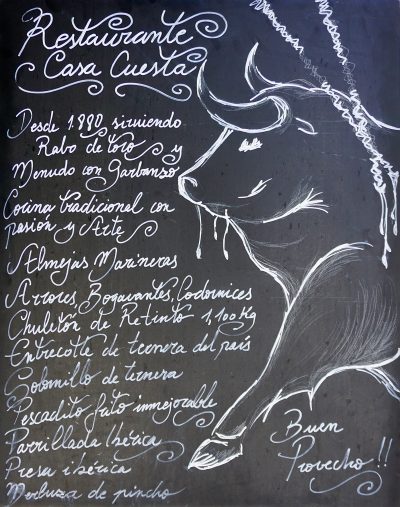 Restaurante
Casa Cuesta
Desde 1.880 sirviendo
Rabo de toro y
Menudo con Garbanzo
Cocina tradicional con
pasión y Arte
Almejas Marineras
Arroces, Bogavantes, Codornices
Chuletón de Retinto 1,100kg
Entrecotte de ternera del país
Solomillo de ternera
Pescadito frito inmejorable
Parrillada Ibérica
Presa ibérica
Merluza de pincho
Buen
Provecho!!